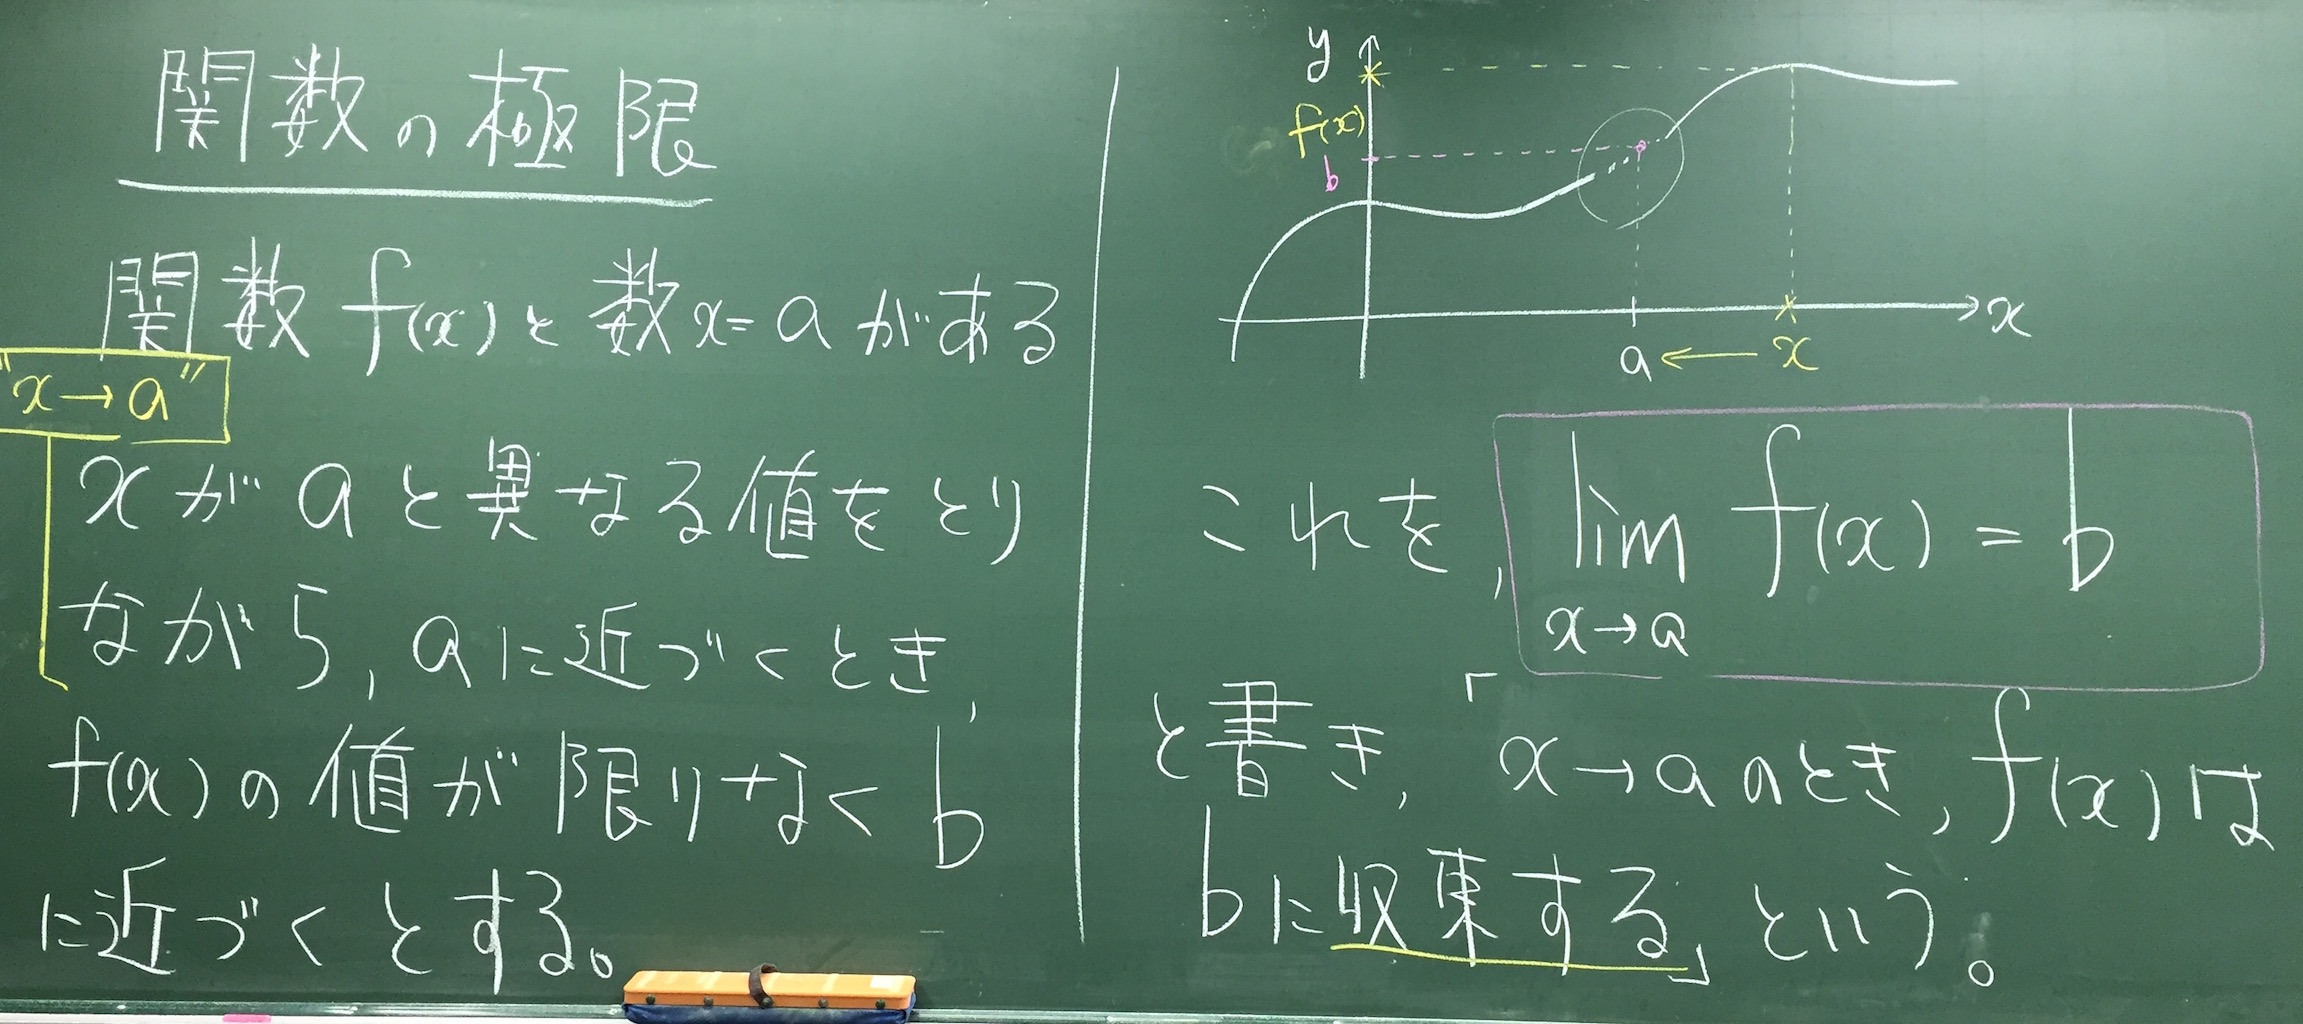 関数の極限
関数f(x)と数x=aがある
"x→a"
xがaと異なる値をとり
ながら,aに近づくとき,
f(x)の値が限りなくb
に近づくとする。
y
f(x)
b
x
a ← x
これを, lim f(x) = b
x→a
と書き,「x→aのとき,f(x)は
bに収束する」という。